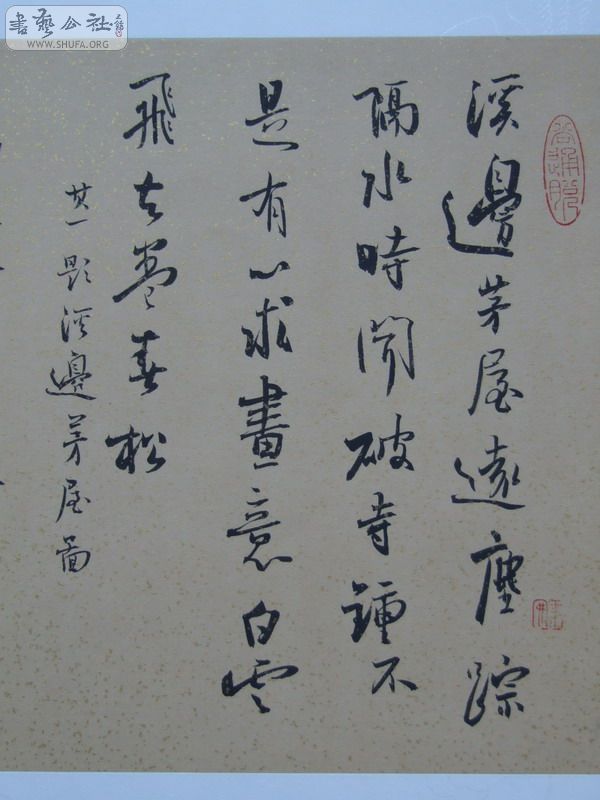 書藝公社
WWW.SHUFA.ORG
溪邊茅屋遠塵踪
隔水時聞破寺鐘不
是有心求畫意白雲
飛去卷春松
其一題溪邊茅屋圖